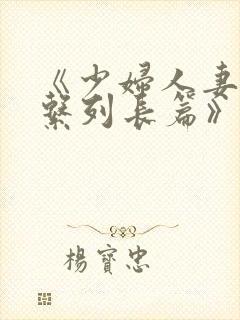 《少婦人妻
繫列長篇》
楊寶忠